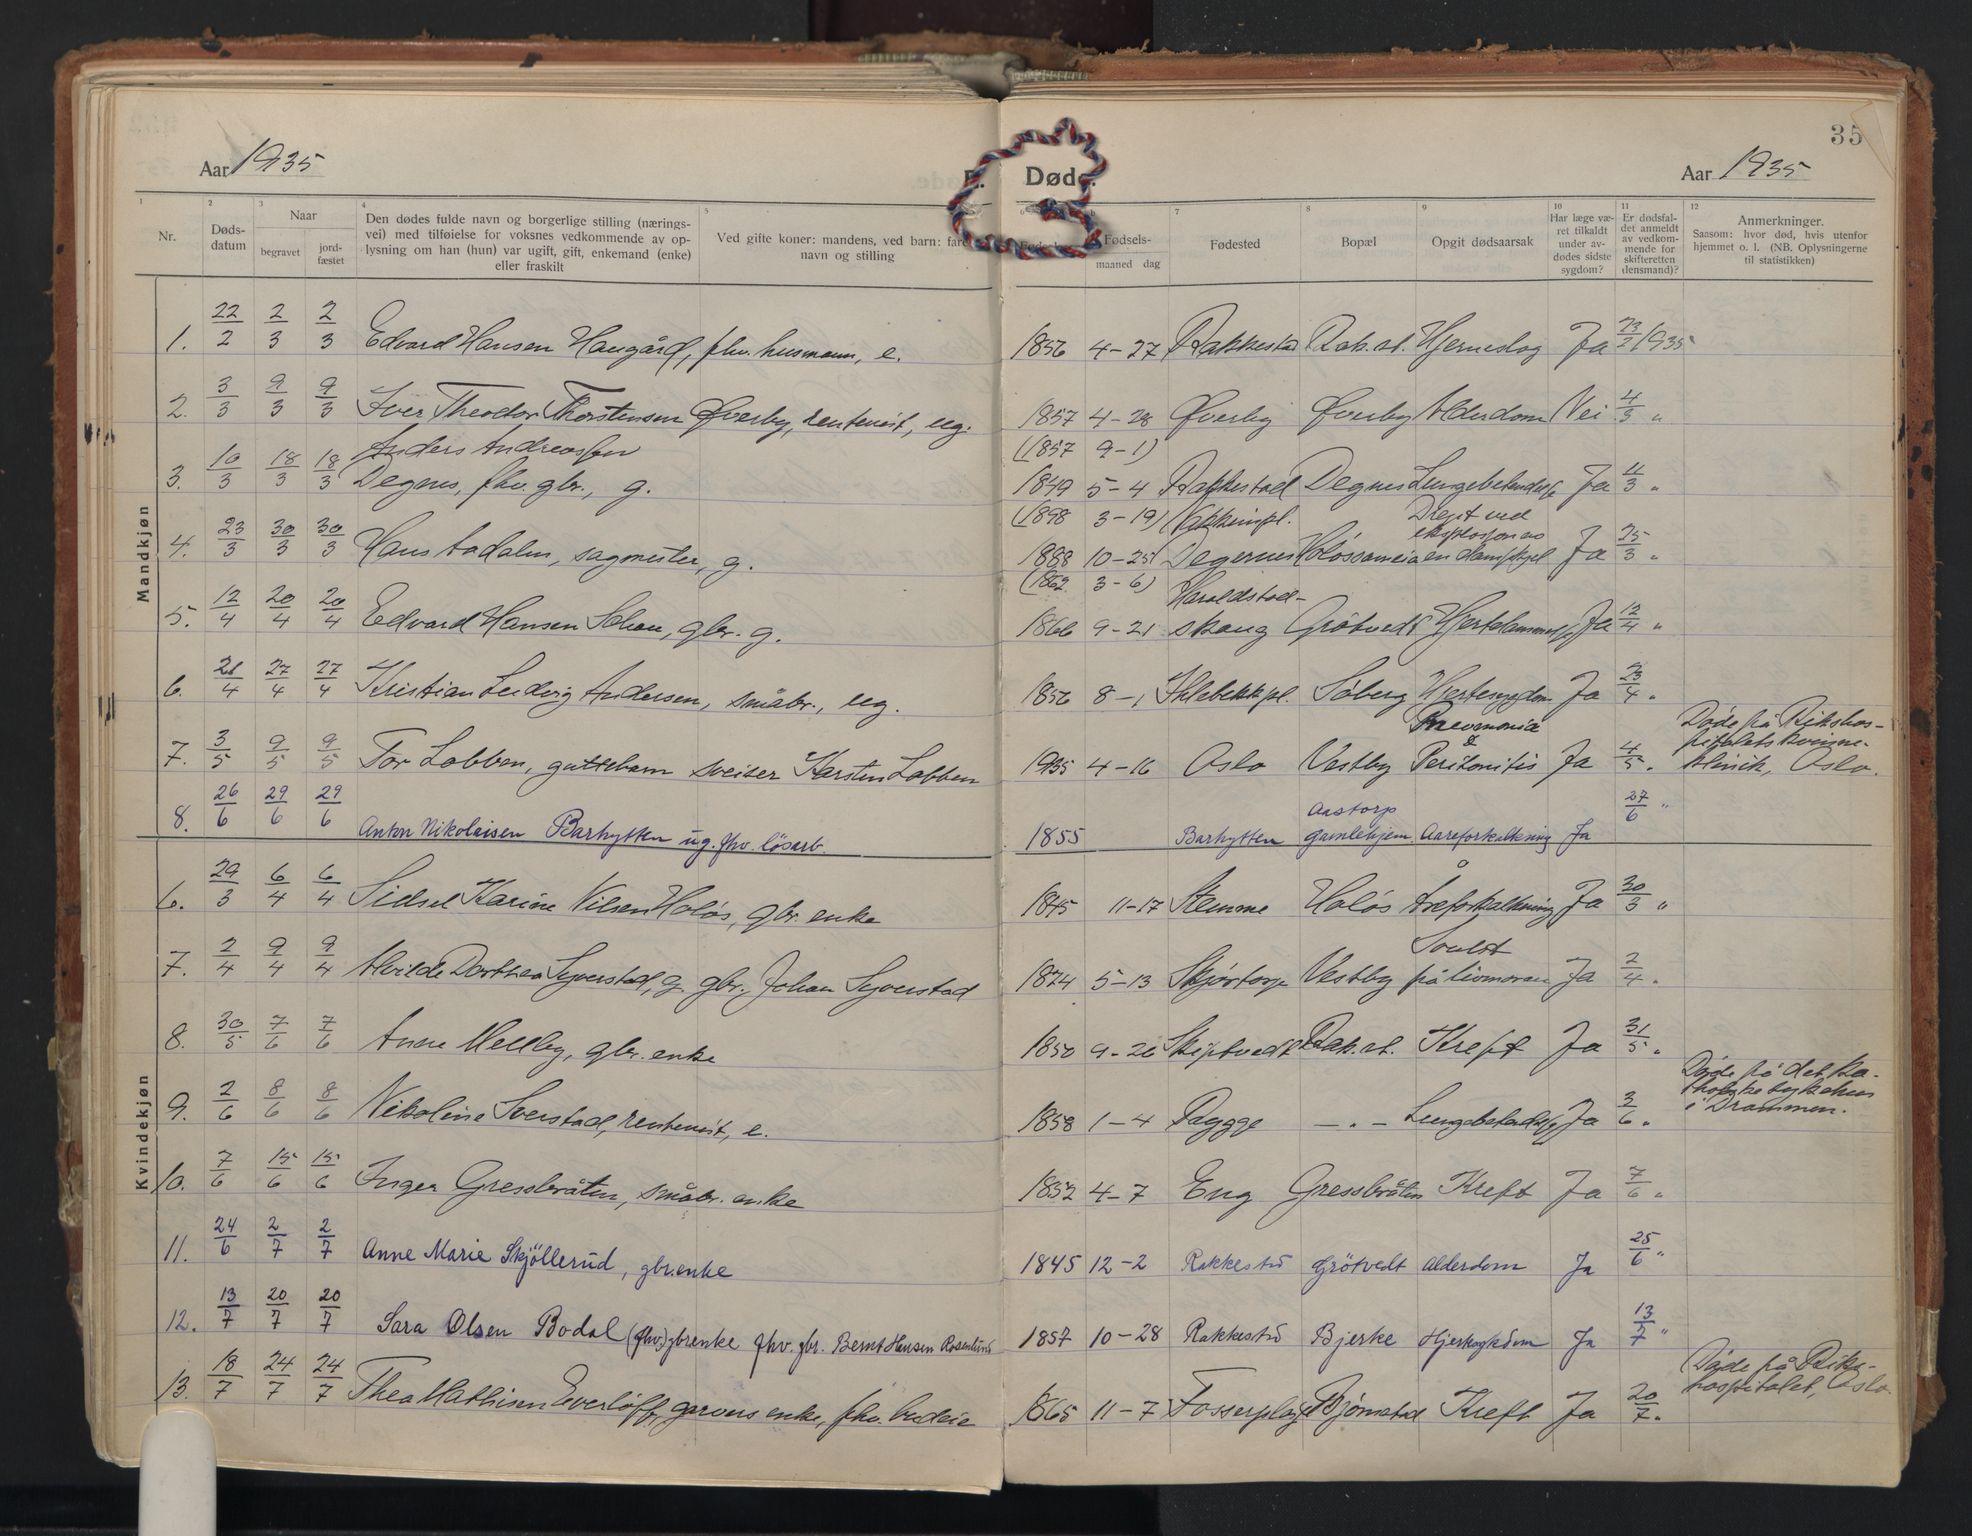 35
Aar 1935
Døde.
Aar 1935
Nr.
Døds-
datum
Naar
begravet
jord-
fæstet
Den dødes fulde navn og borgerlige stilling (nærings-
vei) med tilføielse for voksnes vedkommende av op-
lysning om han (hun) var ugift, gift, enkemand (enke)
eller fraskilt
Ved gifte koner: mandens, ved barn:
navn og stilling
Fødsels-
maaned dag
Fødested
Bopæl
Opgit dødsaarsak
Har læge væ-
ret tilkaldt
under av-
dødes sidste
sygdom?
Er dødsfal-
det anmeldt
av vedkom-
mende for
skifteretten
(lensmand)?
Anmerkninger.
Saasom: hvor død, hvis utenfor
hjemmet o. l. (NB. Oplysningerne
til statistikken)
Mandkjøn
1. 22/2 2/3 2/3 Edvard Hansen Haugård, fhv. husmann, e. 1856 4-27 Rakkestad Rak.st. Hjerneslag Ja 23/2 1935
2. 3/3 9/3 9/3 Iver Theodor Thorstensen Øverby, rentenist, ug. 1857 4-28 Øverby Øverby Alderdom Nei 4/3 "
Anders Andreassen (1857 9-1)
3. 10/3 18/3 18/3 Degnes, fhv. gbr., g. 1849 5-4 Rakkestad Degnes Lungebetendelse Ja 4/3 "
(1898 3-19) Drept ved
eksplosjon av
4. 23/3 30/3 30/3 Hans sagmester, g. 1888 10-25 Degernes en dampkjel Ja 25/3 "
(1862 3-6) Haraldstad-
5. 12/4 20/4 20/4 Edvard Hansen g. 1866 9-21 skaug Grötvedt Ja 12/4 "
6. 21/4 27/4 27/4 Kristian Ludvig Andersen, småbr., ug. 1856 8-1 Søberg Hjertesygdom Ja 23/4 "
Pneumonia
&
Døde på Rikshos-
pitalets kvinne-
klinik, Oslo.
7. 3/5 9/5 9/5 Tor Lobben, guttebarn sveiser Karsten Lobben 1935 4-16 Oslo Vestby Peritonitis Ja 4/5 "
Aastorp
8. 26/6 29/6 29/6 Anton Nikolaisen Barhytten ug. fhv. løsarb. 1855 Barhytten gamlehjem Aareforkalkning Ja 27/6 "
Kvindekjøn
6. 29/3 6/4 6/4 Sidsel Karine Nilsen Holøs, gbr. enke 1845 11-17 Stemme Holøs Åreforkalkning Ja 30/3 "
Svulst
7. 2/4 9/4 9/4 Alvilde Dorthea Syverstad, g. gbr. Johan Syverstad 1874 5-13 Skjörtorp Vestby på livmoren Ja 2/4 "
8. 30/5 7/6 7/6 Anne Mellby, gbr. enke 1850 9-26 Skiptvedt Rak.st. Kreft Ja 31/5 "
Døde på det ka-
tholske sykehus
i Drammen.
9. 2/6 8/6 8/6 Nikoline Sverstad, rentenist, e. 1858 1-4 Rygge - " - Lungebetendelse Ja 3/6 "
10. 7/6 15/6 15/6 Inger Gressbråten, småbr. enke 1852 4-7 Eng Gressbråten Kreft Ja 7/6 "
11. 24/6 2/7 2/7 Anne Marie Skjöllerud, gbr.enke 1845 12-2 Rakkestd Grötvedt Alderdom Ja 25/6 "
12. 13/7 20/7 20/7 Sara Olsen Bodal (fhv.) gbrenke fhv. gbr. Bernt Hansen Rosenlund 1857 10-28 Rakkestd Bjerke Ja 13/7 "
Døde på Riks-
hospitalet, Oslo
13. 18/7 24/7 24/7 Thea Mathisen Everløff, garvers enke, fhv. budeie 1865 11-7 Fosserplads Bjørnstad Kreft Ja 20/7 "